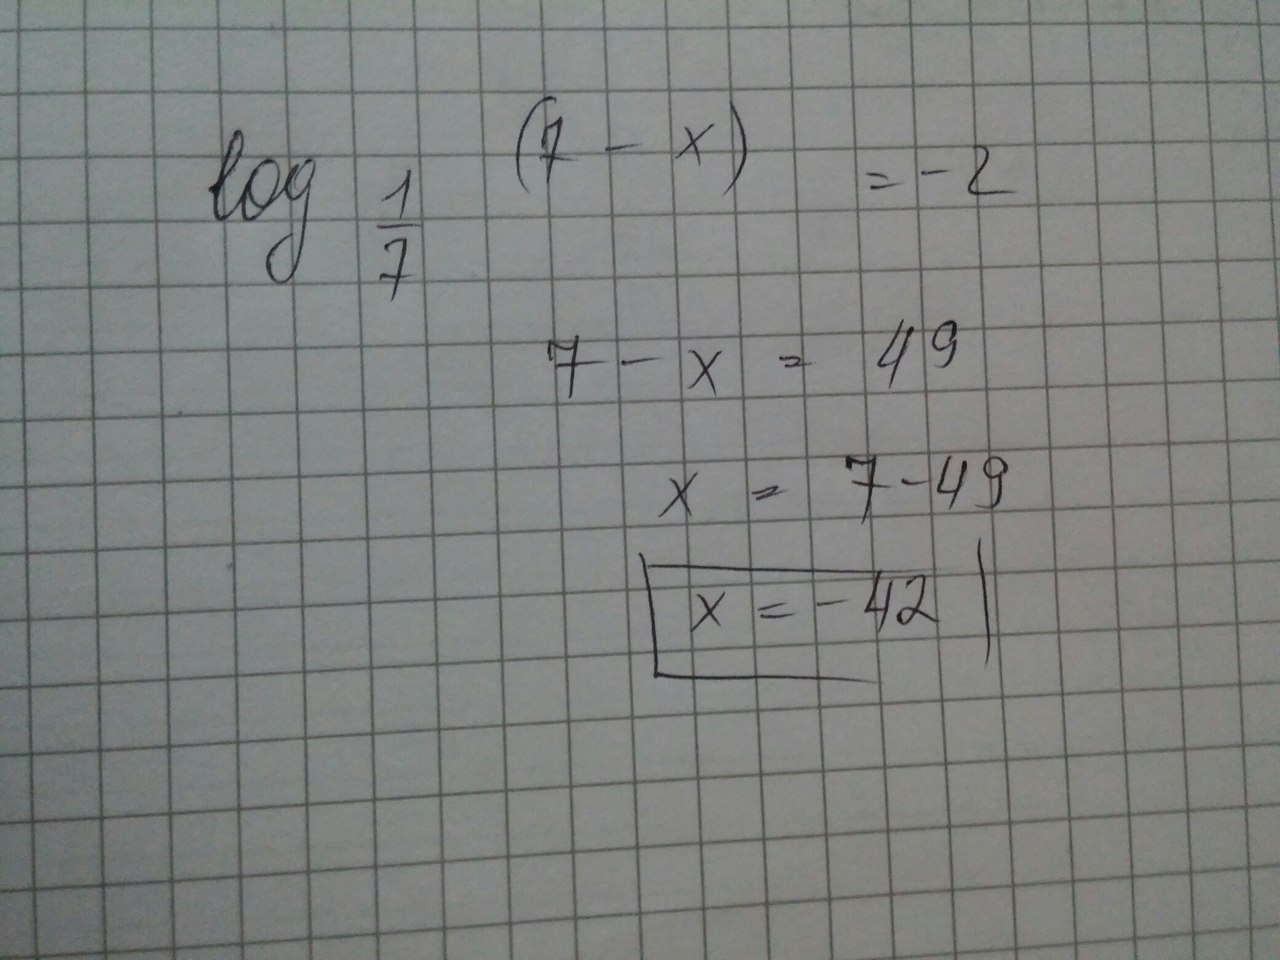 log 1/7 (7 - x) = -2
7 - x = 49
x = 7 - 49
x = -42